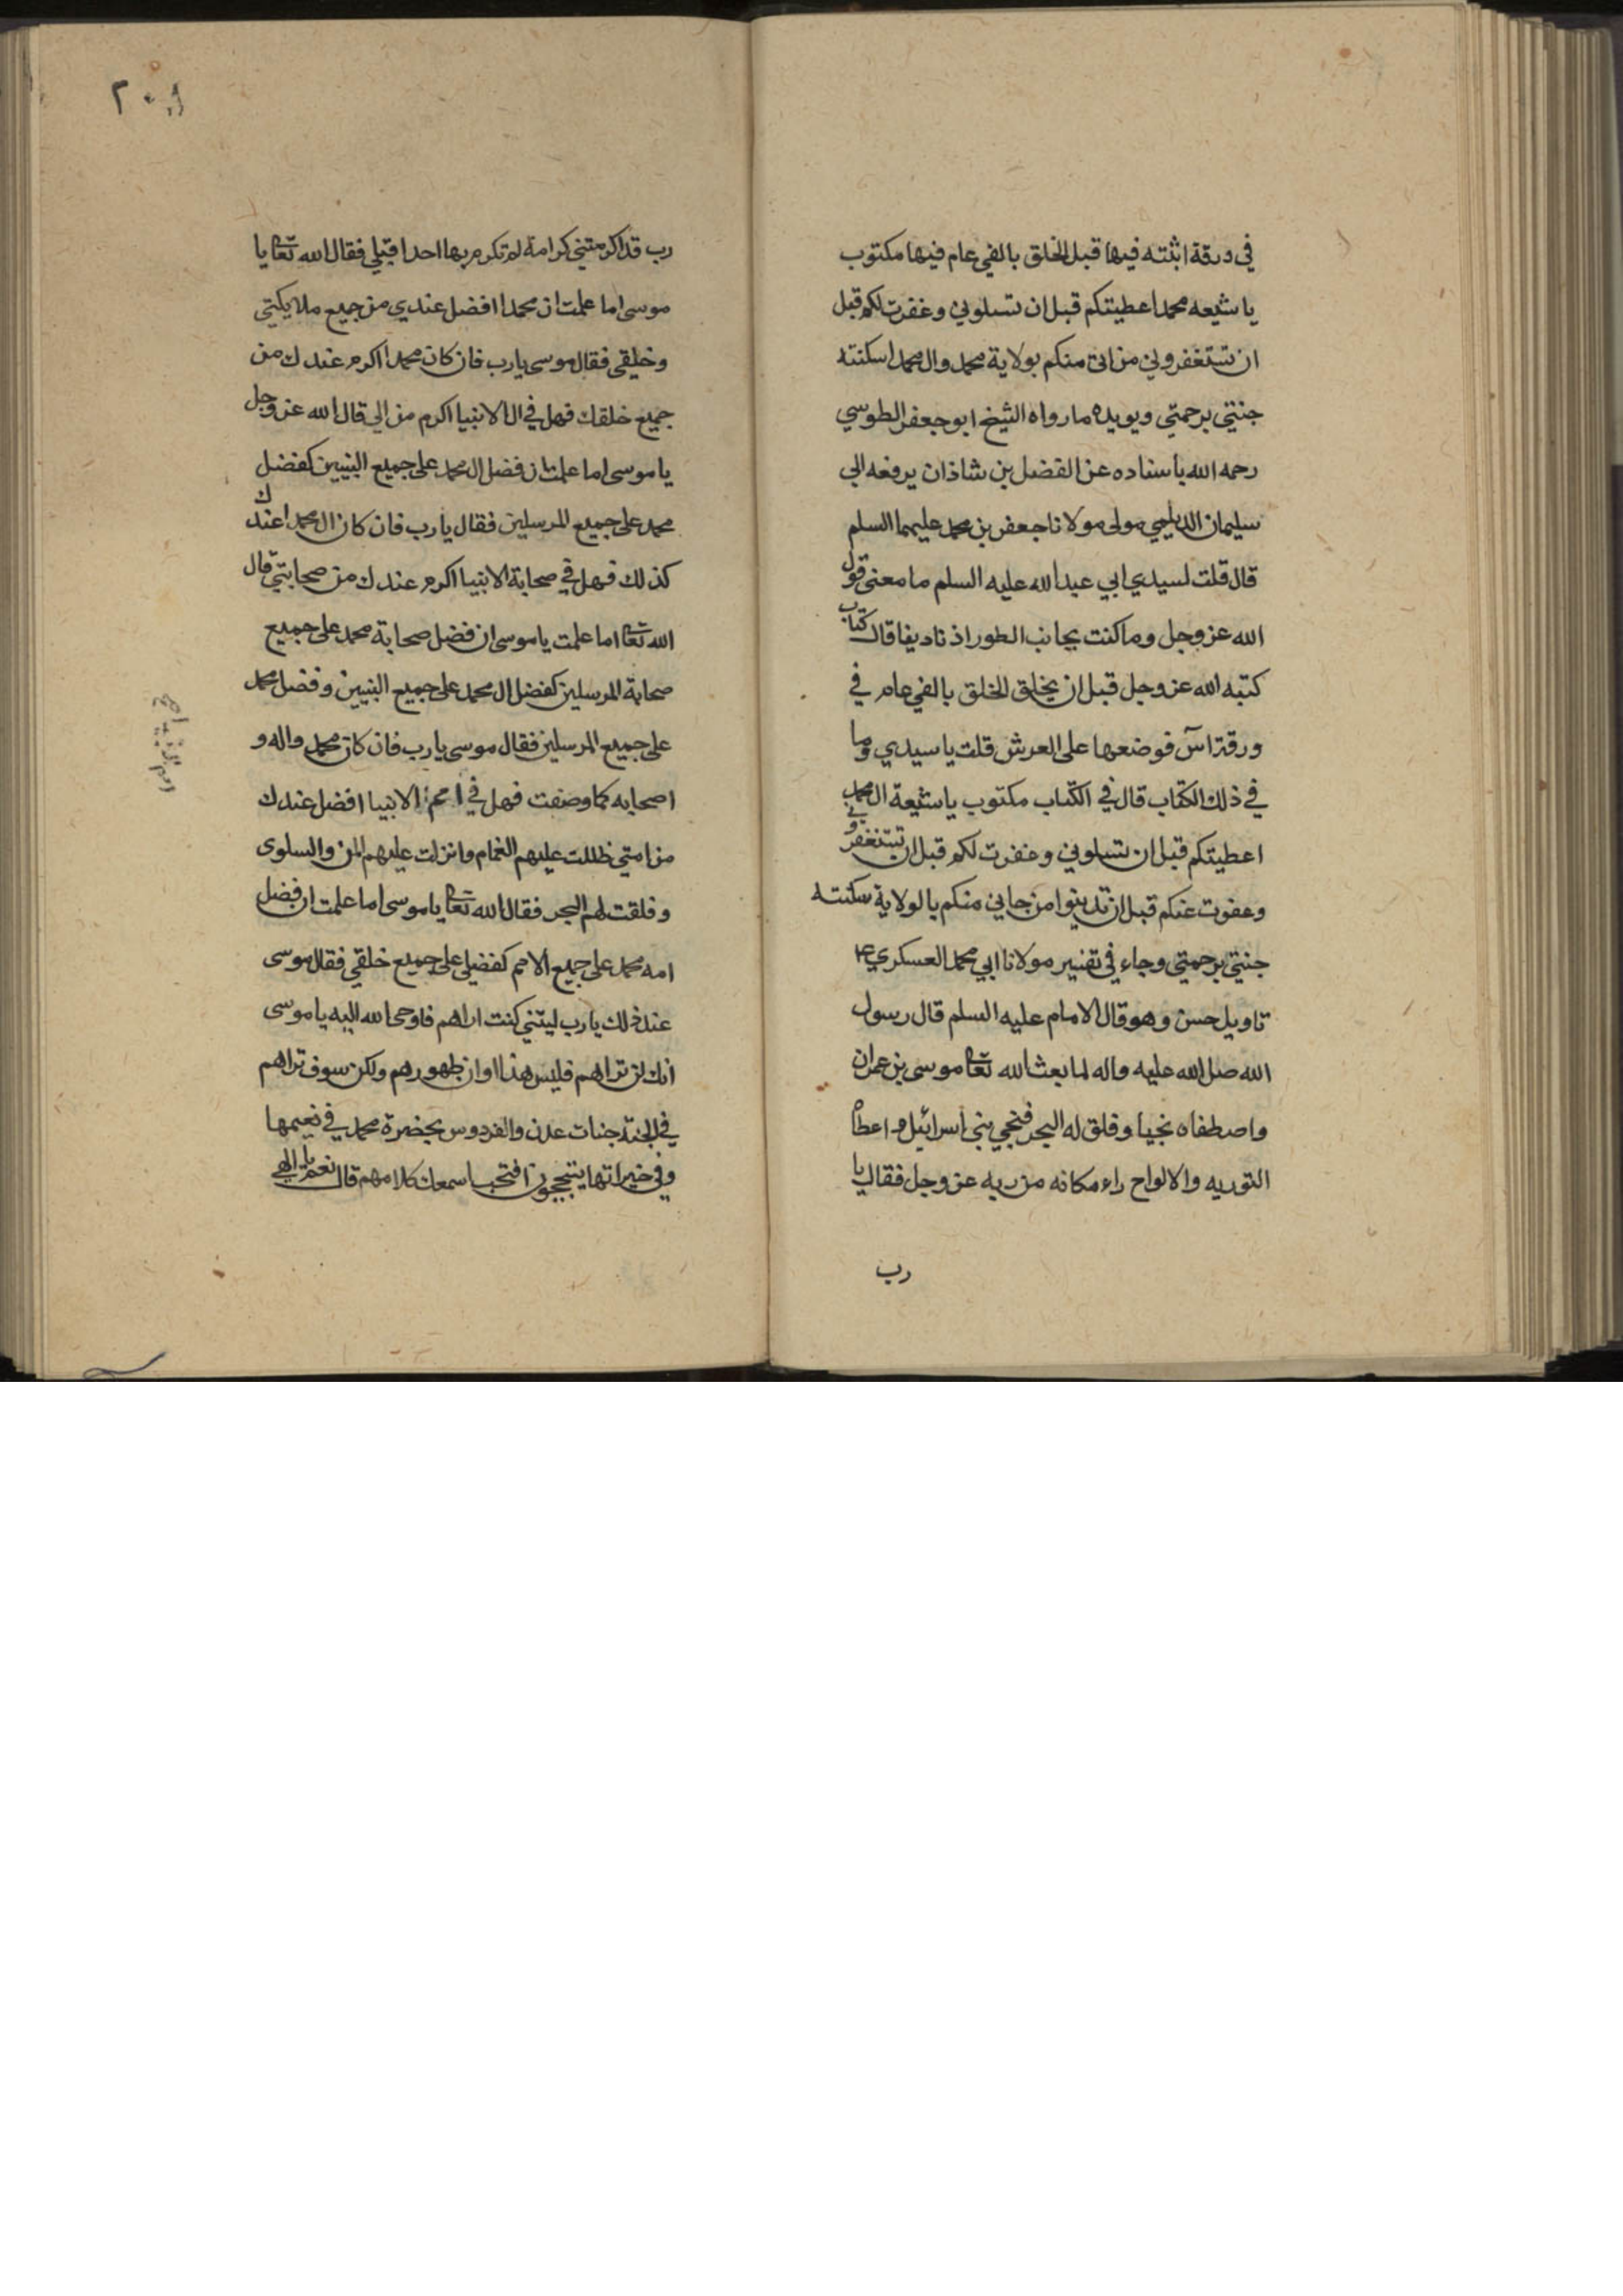 في ورقة اثبته فيها قبل الخلق بالفي عام فيها مكتوب
يا شيعه محمد اعطيتكم قبل ان تسلوني وغفرت لكم قبل
ان تستغفروني من اتى منكم بولاية محمد وال محمد اسكنته
جنتي برحمتي ويويده ما رواه الشيخ ابو جعفر الطوسي
رحمه الله باسناده عن الفضل بن شاذان يرفعه الي
سليمان الديلمي مولى مولانا جعفر بن محمد عليهما السلم
قال قلت لسيدي ابي عبد الله عليه السلم ما معنى قول
الله عز وجل وما كنت بجانب الطور اذ نادينا قال كتاب
كتبه الله عز وجل قبل ان يخلق الخلق بالفي عام في
ورقة آس فوضعها على العرش قلت يا سيدي وما
في ذلك الكتاب قال في الكتاب مكتوب يا شيعة ال محمد
اعطيتكم قبل ان تسلوني وغفرت لكم قبل ان تستغفروني
وعفوت عنكم قبل ان تذنبوا من جاني منكم بالولاية سكنته
جنتي برحمتي وجاء في تفسير مولانا ابي محمد العسكري ع
تاويل حسن وهو قال الامام عليه السلم قال رسول
الله صل الله عليه واله لما بعث الله تعا موسى بن عمران
واصطفاه نجيا وفلق له البحر فنجي بني اسرائيل و اعطاه
التوريه والالواح راء مكانه من ربه عز وجل فقال يا
رب
٢٠٨
رب قد اكرمتني كرامة لم تكرم بها احدا قبلي فقال الله تعا يا
موسى اما علمت ان محمدا افضل عندي من جميع ملايكتي
وخليقي فقال موسى يارب فان كان محمد اكرم عندك من
جميع خلقك فهل في ال الانبيا اكرم من الي قال الله عز وجل
يا موسى اما علمت ان فضل ال محمد على جميع النبيين كفضل
محمد على جميع المرسلين فقال يا رب فان كان ال محمد عندك
كذلك فهل في صحابة الانبيا اكرم عندك من صحابتي قال
الله تعا اما علمت يا موسى ان فضل صحابة محمد على جميع
صحابة المرسلين كفضل ال محمد على جميع النبيين وفضل محمد
على جميع المرسلين فقال موسى يا رب فان كان محمد واله و
اصحابه كما وصفت فهل في امم الانبيا افضل عندك
من امتي ظللت عليهم الغمام وانزلت عليهم المن والسلوى
وفلقت لهم البحر فقال الله تعا يا موسى اما علمت ان فضل
امه محمد على جميع الامم كفضلي على جميع خلقي فقال موسى
عند ذلك يا رب ليتني كنت اراهم فاوحى الله اليه يا موسى
انك لن تراهم فليس هذا اوان ظهورهم ولكن سوف تراهم
في الجنة جنات عدن والفردوس بحضرة محمد في نعيمها
وفي خيراتها يتبجحون افتحب اسمعك كلامهم قال نعم يا الهي